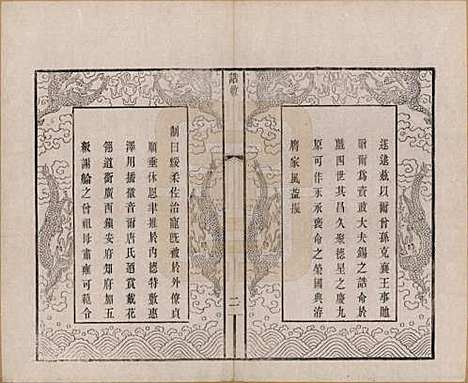 逮逮茲以爾曾孫克襄王事貤
贈爾為資政大夫錫之誥命於
戲四世其昌久聚德星之慶九
原可作永承褒命之榮國典滂
膺家風益振
誥敕
二
制曰綏柔佐治寵既被於外僚貞
順垂休恩聿推於內德特敷惠
澤用播徽音爾唐氏迺賞戴花
翎道銜廣西鎮安府知府加五
級謝綸之曾祖母肅雍可範令